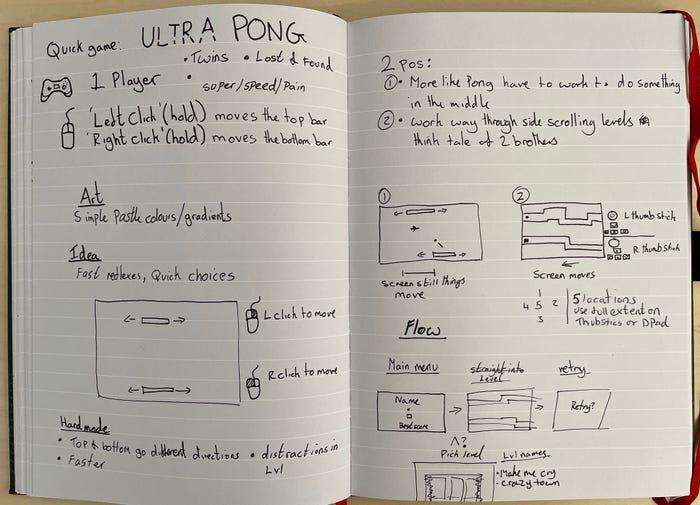 Quick game: ULTRA PONG
• Twins • Lost & Found
1 Player
• super/speed/pain
'Left Click' (hold) moves the top bar
'Right click' (hold) moves the bottom bar
Art
Simple Pastle colours/gradients
Idea
Fast reflexes, Quick choices
L click to move
R click to move
Hard mode
• Top & bottom go different directions
• Faster
• distractions in
Lvl
2 pos:
① • More like Pong have to work to do something
in the middle
② • work way through side scrolling levels
think tale of 2 brothers
①
②
L thumbstick
R thumbstick
Screen still things
move
Screen moves
1
4 5 2
3
5 locations
use full extent on
Thubstics or DPad
Flow
Main menu
straight into
Level
retry
Name
Best score
Retry?
^?
Pick level
Lvl names
• Make me cry
• Crazy town